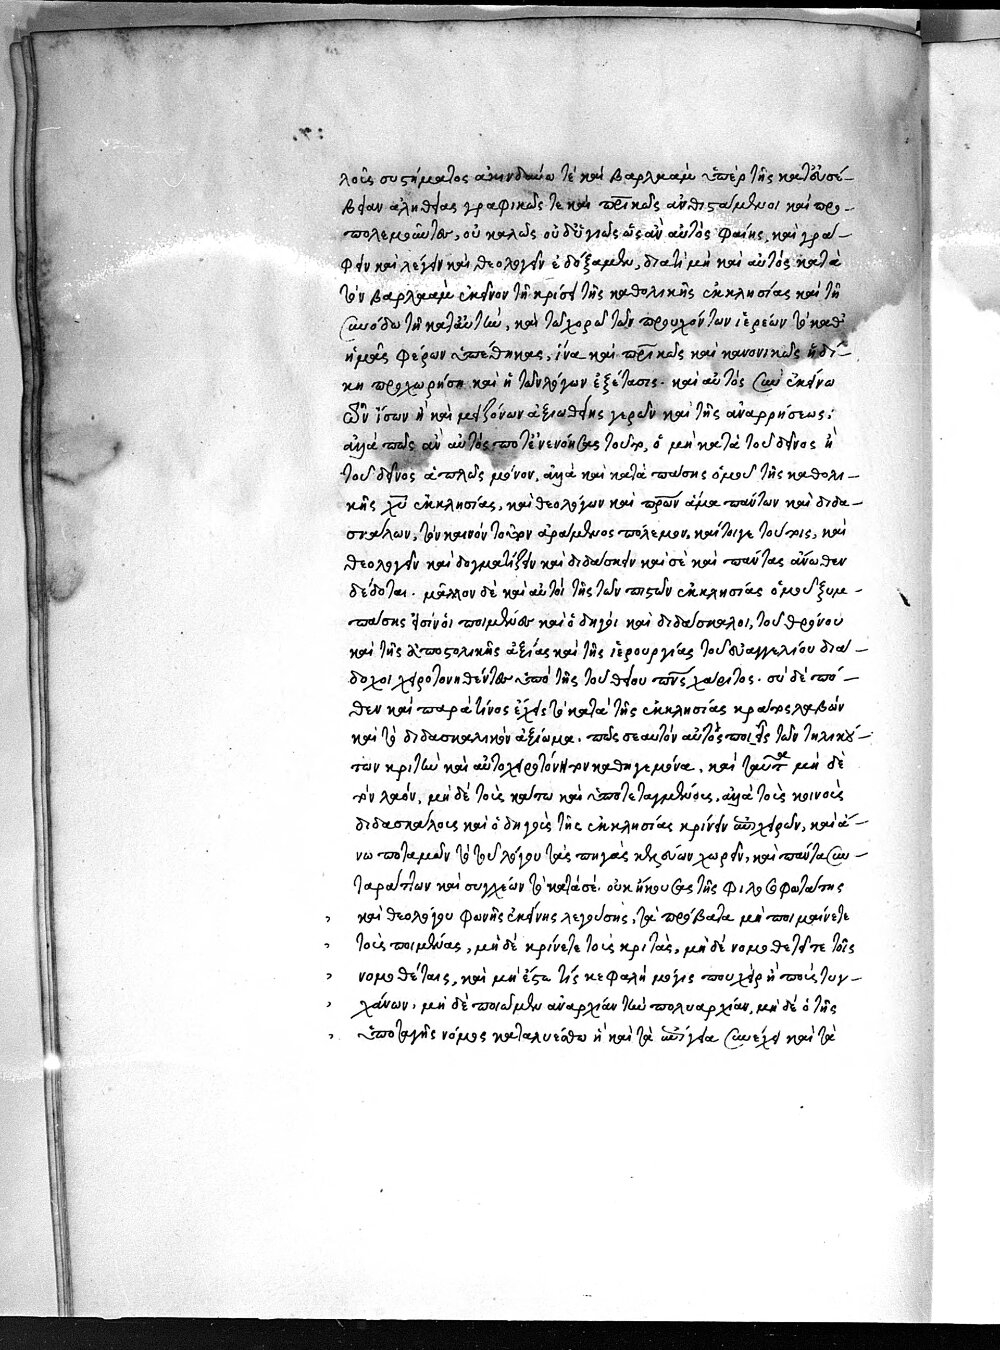 λοῖς συστήματος ἀκινδύνω τὲ καὶ βαρλαὰμ ὑπὲρ τῆς κατ' εὐσέ-
βειαν ἀληθείας γραφικῶς τε καὶ πρικῶς ἀνθισταμένοι καὶ προ-
πολεμοῦντες, οὐ καλῶς οὐδ' ὑγιῶς ὡς ἂν αὐτὸς φαίης, καὶ γρά-
φειν καὶ λέγειν καὶ θεολογεῖν ἐδόξαμεν, διατί μὴ καὶ αὐτὸς κατὰ
τὸν βαρλαὰμ ἐκεῖνον τῆ κρίσει τῆς καθολικῆς ἐκκλησίας καὶ τῆ
συνόδω τῆ κατ' αὐτὴν, καὶ τῶ χορῶ τῶν προυχόντων ἱερέων τὸ καθ'
ἡμᾶς φέρων ὑπέθηκας, ἵνα καὶ πρικῶς καὶ κανονικῶς ἡ δί-
κη προχωρήση καὶ ἡ τῶν λόγων ἐξέτασις. καὶ αὐτὸς σὺν ἐκείνω
τῶν ἴσων ἢ καὶ μειζόνων ἀξιωθείης γερῶν καὶ τῆς ἀναρρήσεως;
ἀλλὰ πῶς ἂν αὐτός ποτ' ἐνενόησας τοῦτο, ὁ μὴ κατὰ τοῦ δεῖνος ἢ
τοῦ δεῖνος ἁπλῶς μόνον, ἀλλὰ καὶ κατὰ πάσης ὁμοῦ τῆς καθολι-
κῆς χυ ἐκκλησίας, καὶ θεολόγων καὶ πρων ἅμα πάντων καὶ διδα-
σκάλων, τὸν καινὸν τοῦτον ἀράμενος πόλεμον, καίτοιγε τούτοις, καὶ
θεολογεῖν καὶ δογματίζειν καὶ διδάσκειν καὶ σὲ καὶ πάντας ἄνωθεν
δέδοται. μᾶλλον δὲ καὶ αὐτοὶ τῆς τῶν πιστῶν ἐκκλησίας ὁμοῦ ξυμ-
πάσης εἰσὶν οἱ ποιμένες καὶ ὁδηγοὶ καὶ διδάσκαλοι, τοῦ θρόνου
καὶ τῆς ἀποστολικῆς ἀξίας καὶ τῆς ἱερουργίας τοῦ εὐαγγελίου διά-
δοχοι χειροτονηθέντες ὑπὸ τῆς τοῦ θείου πνς χάριτος. σὺ δὲ πό-
θεν καὶ παρὰ τίνος ἔχεις τὸ κατὰ τῆς ἐκκλησίας κράτος λαβὼν
καὶ τὸ διδασκαλικὸν ἀξίωμα. πῶς σεαυτὸν αὐτὸς ποιεῖς τῶν τηλικού-
των κριτὴν καὶ αὐτοχειροτόνητον καθηγεμόνα, καὶ ταῦτα μὴ δὲ
τὸν λαόν, μὴ δὲ τοὺς κάτω καὶ ὑποτεταγμένους, ἀλλὰ τοὺς κοινοὺς
διδασκάλους καὶ ὁδηγοὺς τῆς ἐκκλησίας κρίνειν ἐπιχειρῶν, καὶ ἄ-
νω ποταμῶν τὸ τοῦ λόγου τὰς πηγὰς κινῶν χωρεῖν, καὶ πάντα συν-
ταράττων καὶ συγχέων τὸ κατὰ σέ. οὐκ ἤκουσας τῆς φιλοσοφωτάτης
καὶ θεολόγου φωνῆς ἐκείνης λεγούσης, τὰ πρόβατα μὴ ποιμαίνετε
τοὺς ποιμένας, μὴ δὲ κρίνετε τοὺς κριτὰς, μὴ δὲ νομοθετεῖτε τοῖς
νομοθέταις, καὶ μὴ ἔστω τίς κεφαλὴ μόγις που χεὶρ ἢ ποὺς τυγ-
χάνων. μὴ δὲ ποιῶμεν ἀναρχίαν τὴν πολυαρχίαν, μὴ δὲ ὁ τῆς
ὑποταγῆς νόμος καταλυέσθω ἢ καὶ τὰ ἐπίγεια συνέχει καὶ τὰ